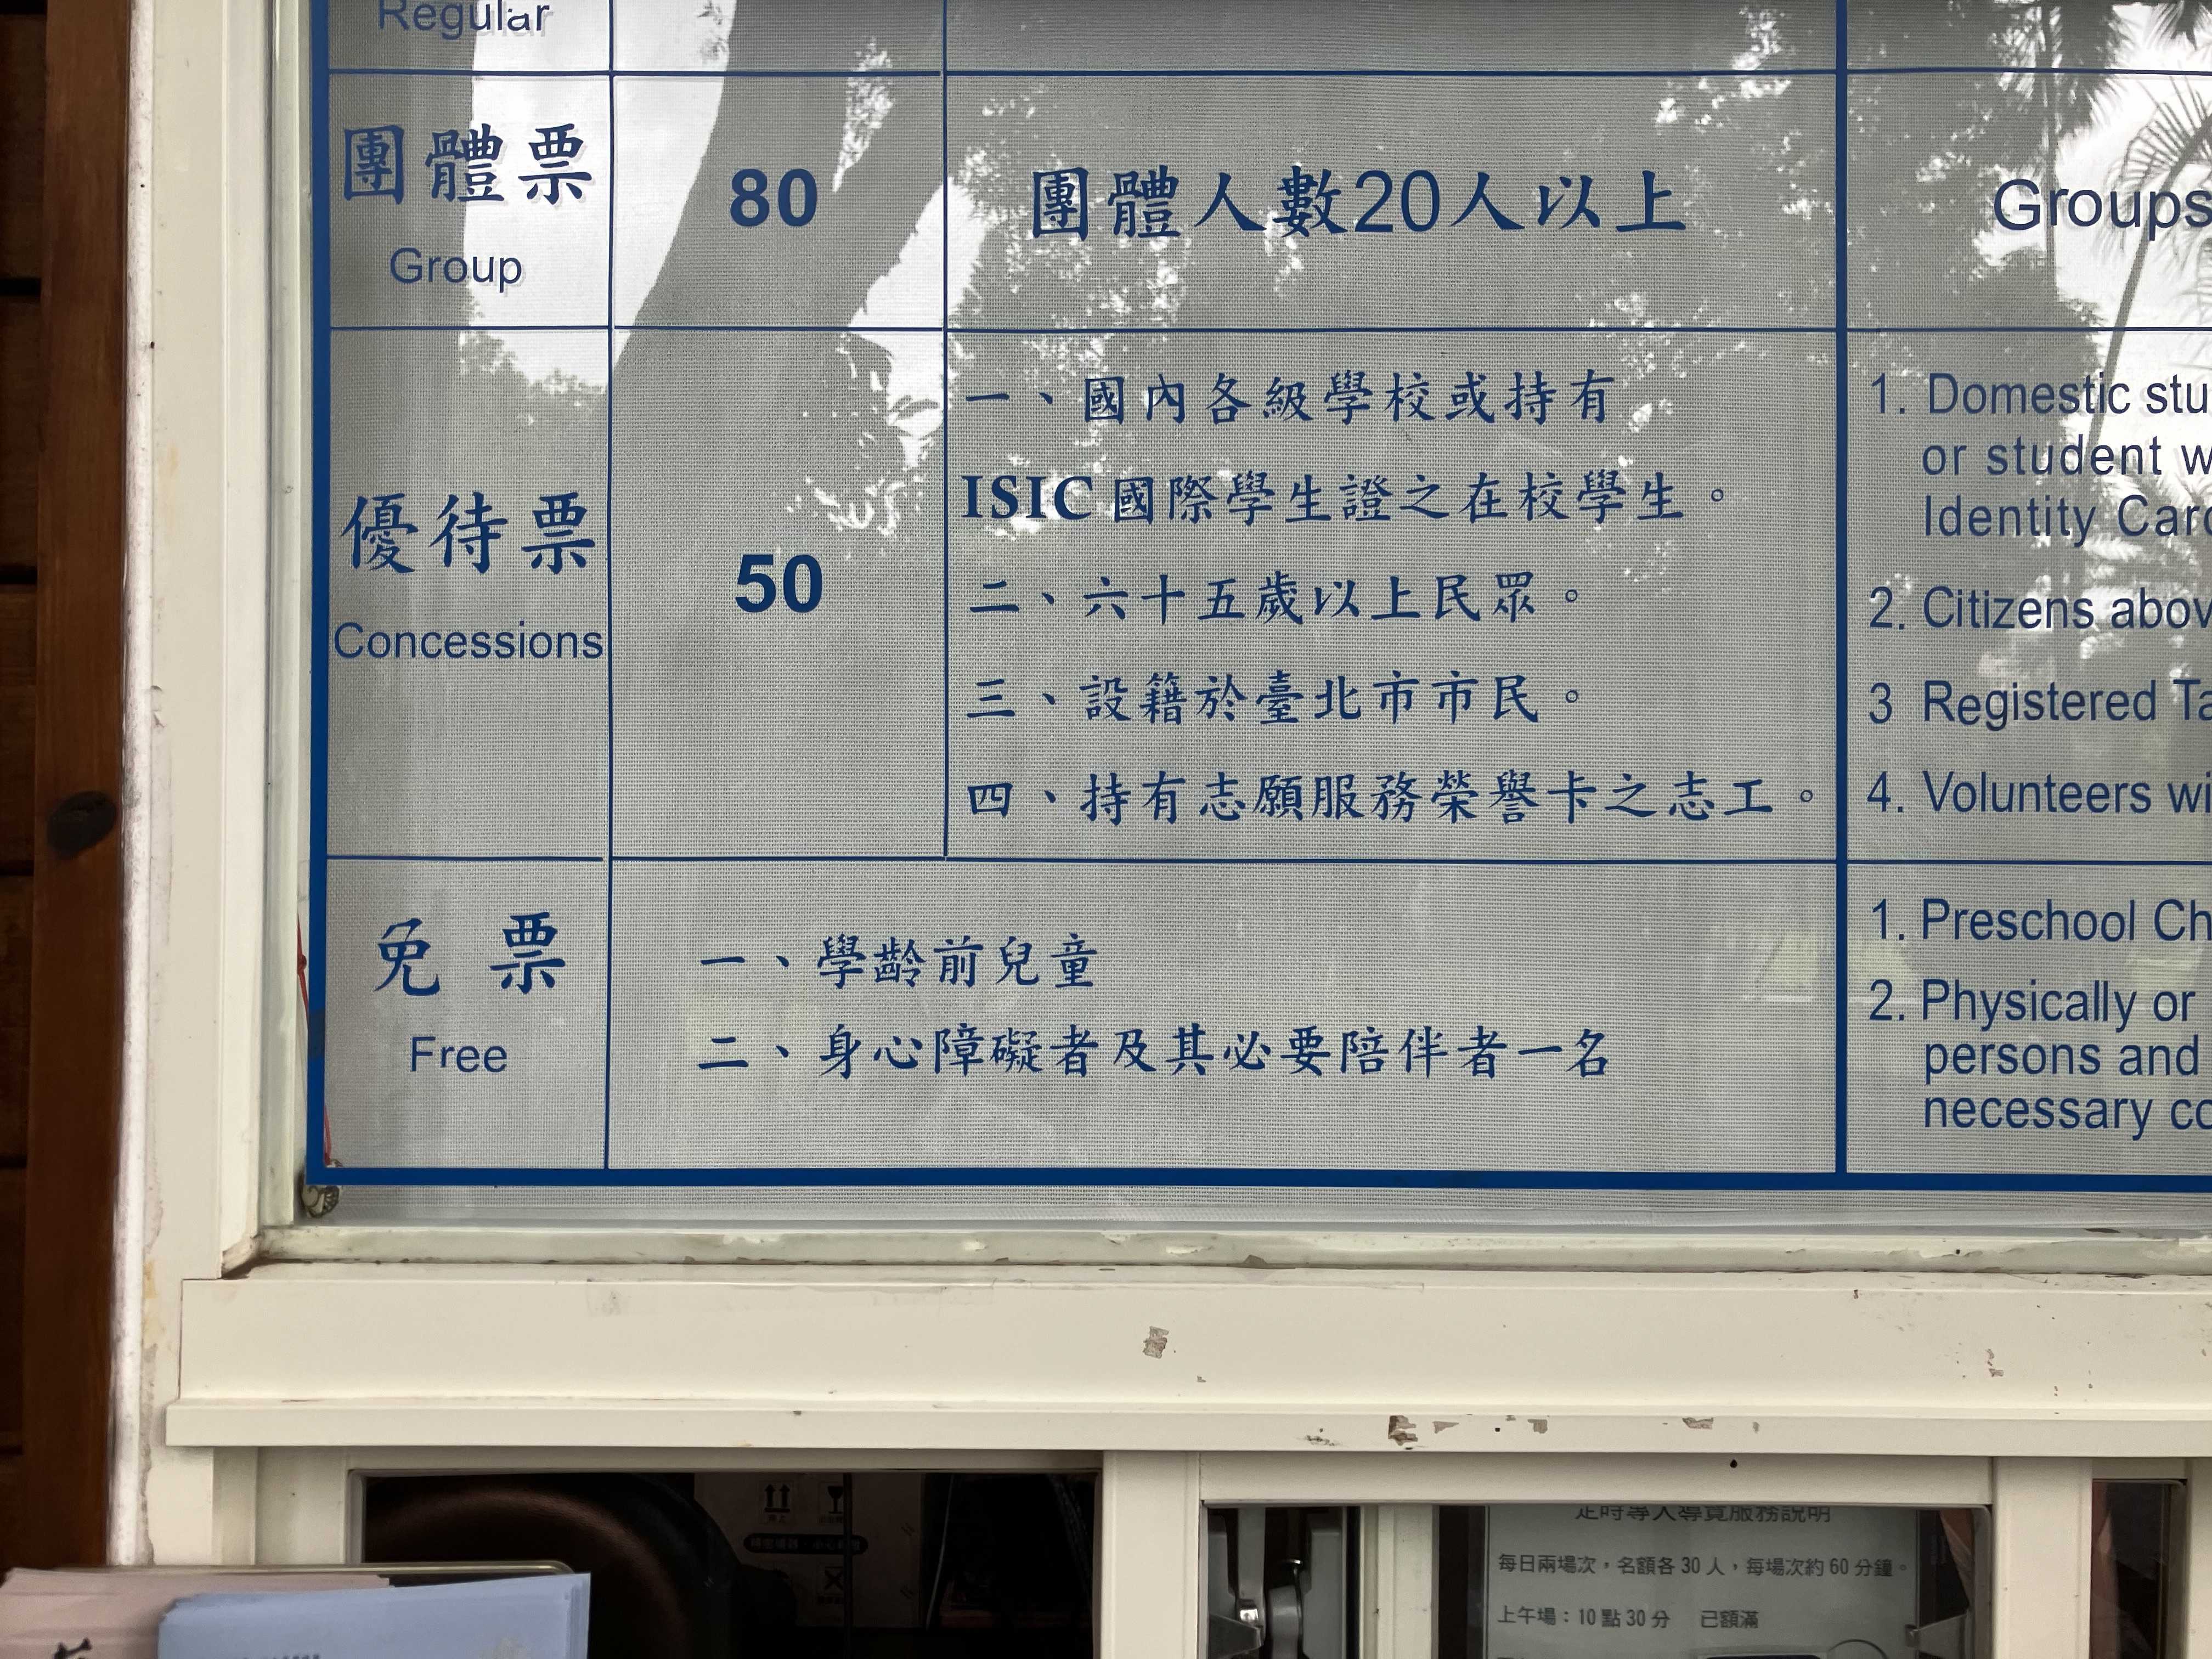 Regular
團體票
Group
80
團體人數20人以上
Groups
優待票
Concessions
50
一、國內各級學校或持有
ISIC 國際學生證之在校學生。
二、六十五歲以上民眾。
三、設籍於臺北市市民。
四、持有志願服務榮譽卡之志工。
1. Domestic stu
or student w
Identity Car
2. Citizens abov
3 Registered Ta
4. Volunteers wi
免票
Free
一、學齡前兒童
二、身心障礙者及其必要陪伴者一名
1. Preschool Ch
2. Physically or
persons and
necessary co
定時專人導覽服務說明
每日兩場次，名額各30人，每場次約60分鐘。
上午場：10點30分 已額滿